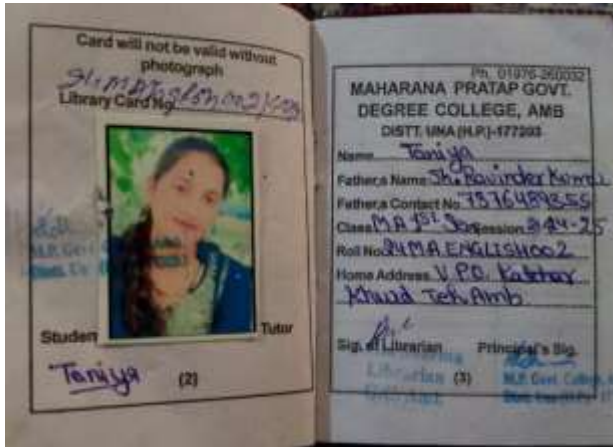 Card will not be valid without
photograph
Library Card No
Student
Tutor
Taniya
(2)
Ph. 01976-260032
MAHARANA PRATAP GOVT.
DEGREE COLLEGE, AMB
DISTT. UNA (H.P.)-177203
Name Taniya
Father,s Name Sh. Ravinder Kumar
Father,s Contact No. 7876489355
Class M.A 1st Session
Roll No. 24MA ENGLISH002
Home Address V.P.O.
Khud Teh Amb
Sig. of Librarian Principal's Sig.
Librarian (3) M.P. Govt. College